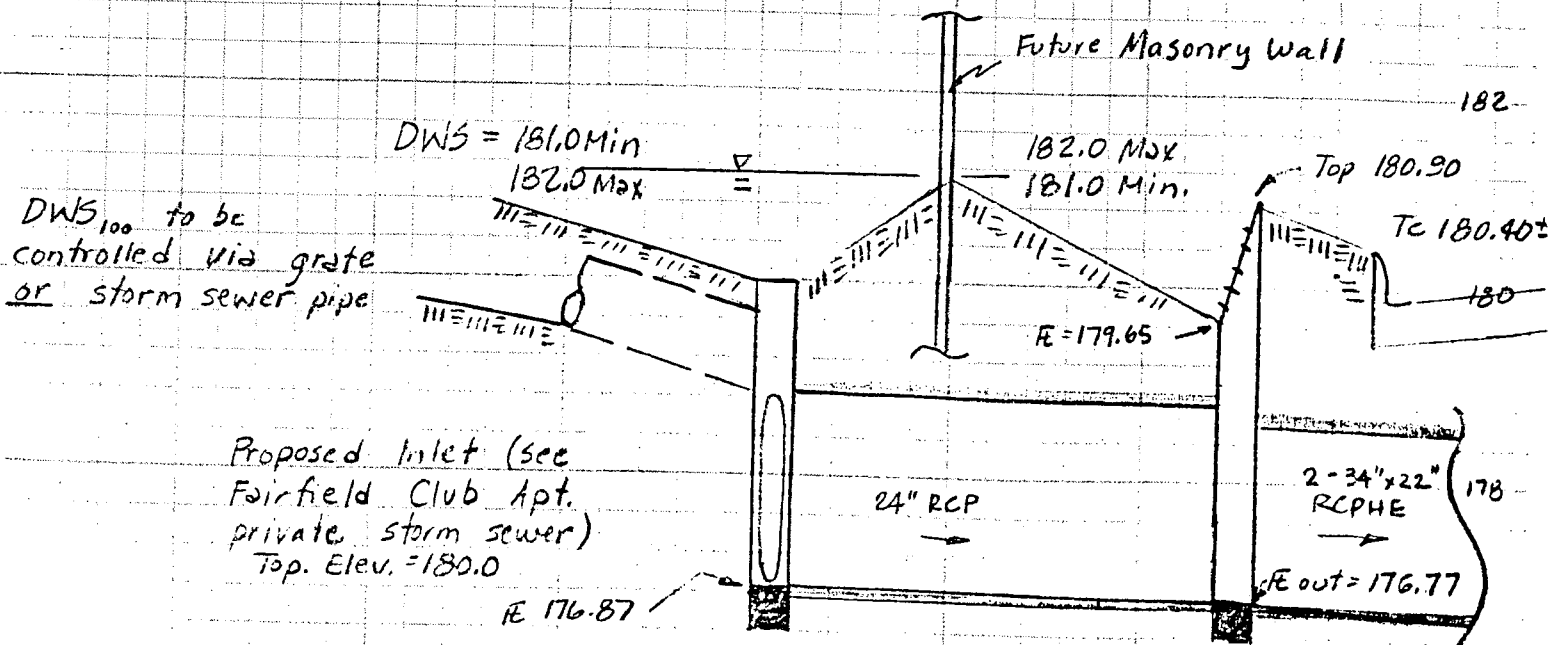 Future Masonry Wall
182
DWS = 181.0 Min
182.0 Max
182.0 Max
181.0 Min.
Top 180.90
Tc 180.40±
DWS100 to be
controlled via grate
or storm sewer pipe
180
FE = 179.65
Proposed Inlet (see
Fairfield Club Apt.
private storm sewer)
Top. Elev. = 180.0
24" RCP
2-34"x22"
RCPHE
178
FE out = 176.77
FE 176.87